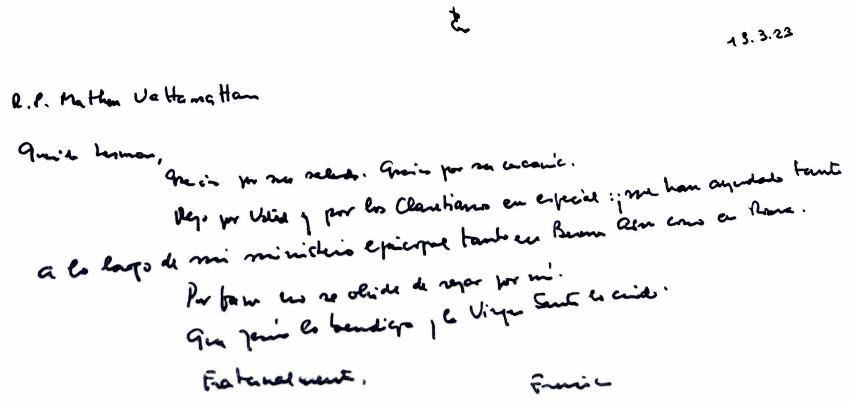 19.3.23
R.P. Mathew Vattamattam
Querido hermano,
Gracias por su saludo. Gracias por su cercanía.
Rezo por Usted y por los Claretianos en especial: ¡me han ayudado tanto
a lo largo de mi ministerio episcopal tanto en Buenos Aires como en Roma.
Por favor no se olvide de rezar por mí.
Que Jesús lo bendiga y la Virgen Santa lo cuide.
Fraternalmente,
Francisco